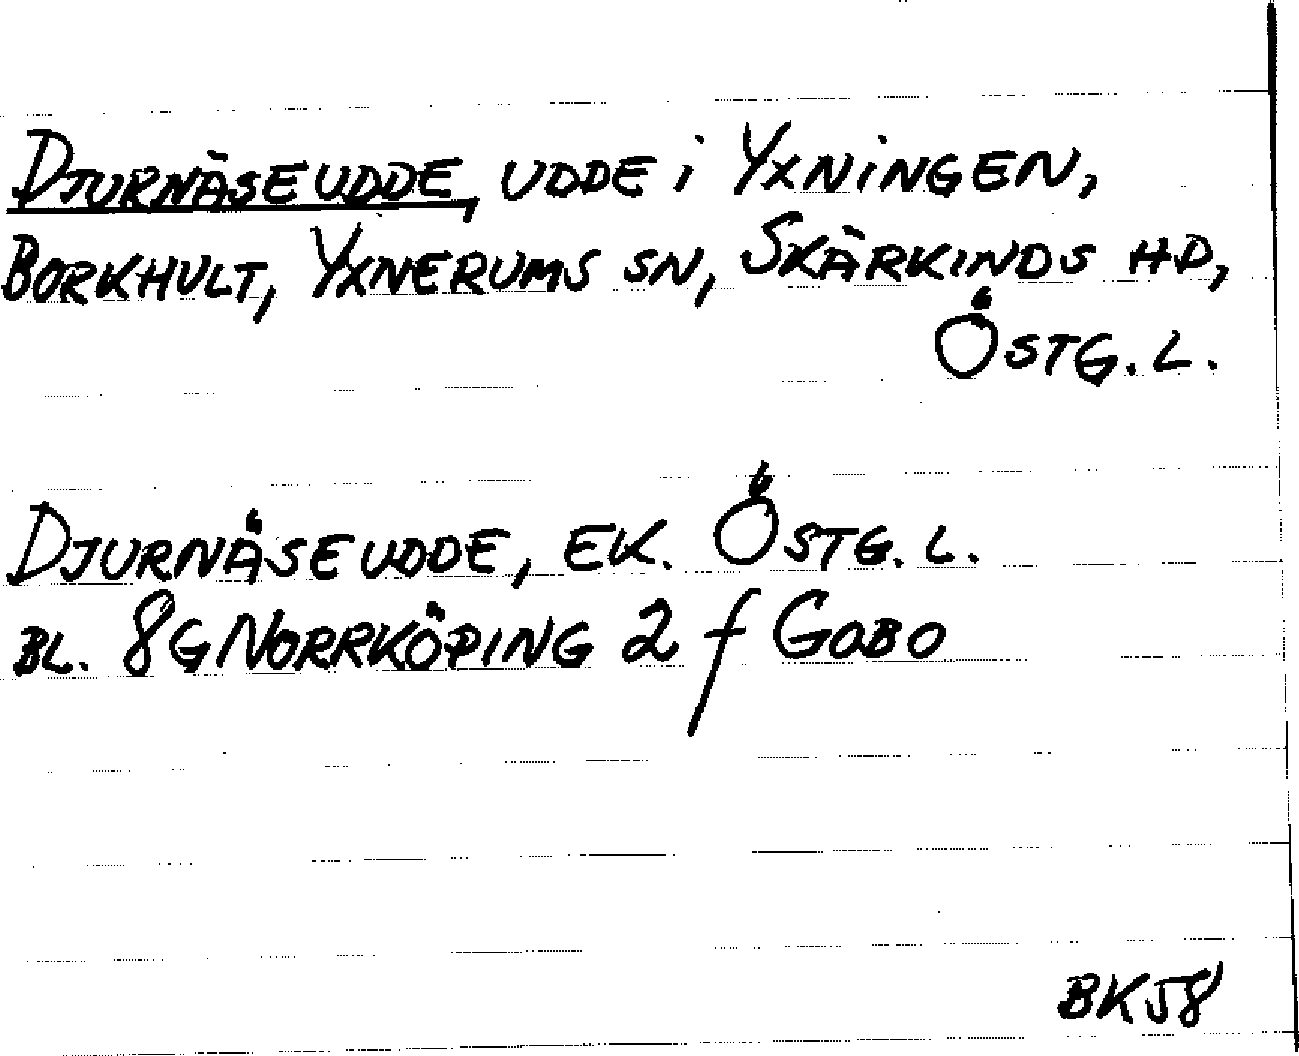 DJURNÄSEUDDE, UDDE i YXNiNGEN,
BORKHULT, YXNERUMS SN, SKÄRKINDS HD,
ÖSTG. L.
DJURNÄSEUDDE, EK. ÖSTG. L.
BL. 8G NORRKÖPING 2 f GOBO
BK58